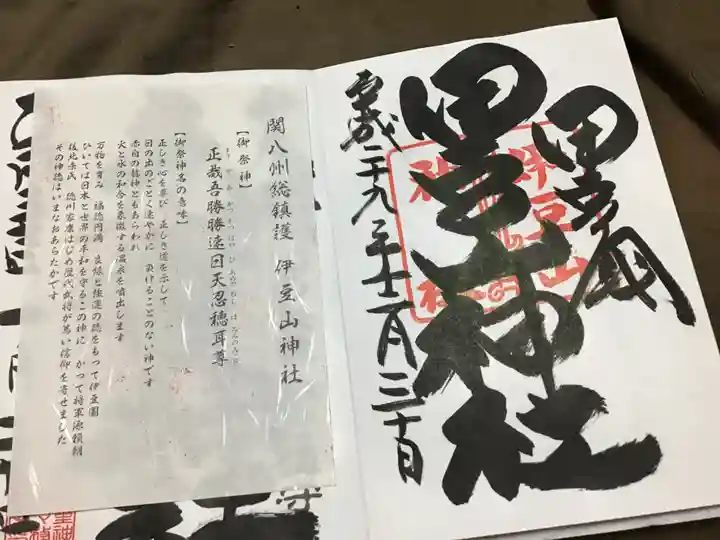 神社
平成二十九年十二月三十日
関八州総鎮護 伊豆山神社
【御祭神】
正哉吾勝勝速日天忍穂耳尊
【御祭神名の意味】
正しき心を尊び 正しき道を示して
日の出のごとく速やかに 負けることのない神です
赤白の龍神ともあらわれ
火と水の和合を象徴する温泉を噴出します
万物を育み 福徳円満 良縁と強運の徳をもつて伊豆国
ひいては日本と世界の平和を守るこの神に かつて将軍源頼朝
後北条氏 徳川家康はじめ歴代武将が篤い信仰を寄せました
その神徳はいまなおあらたかです